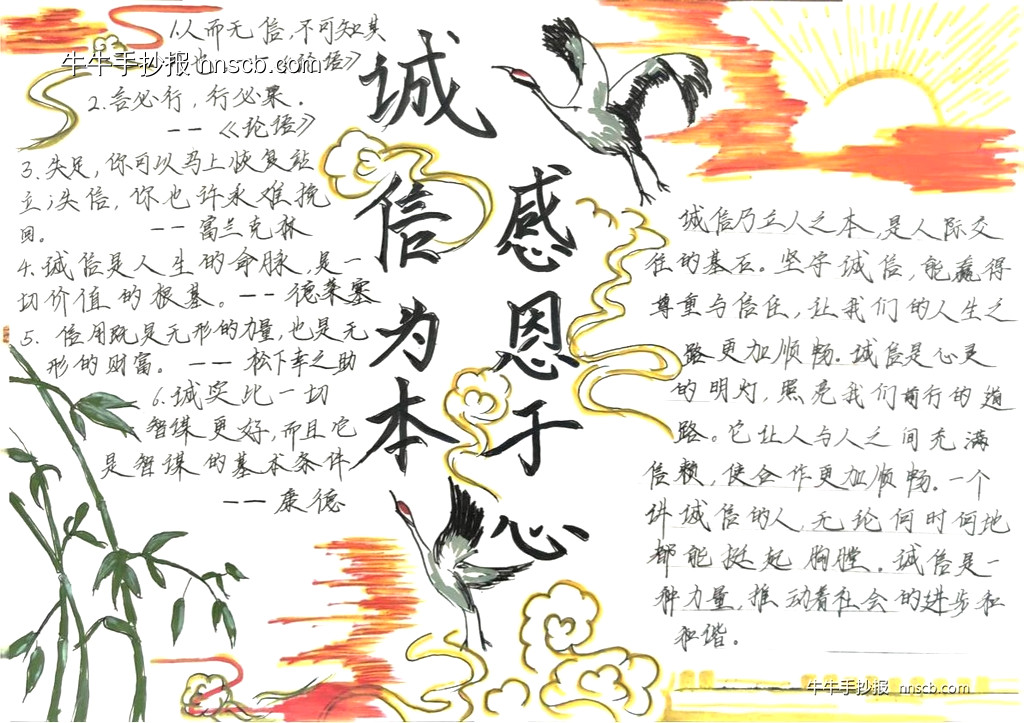 1.人而无信,不可知其
也 《论语》
牛牛手抄报 nnscb.com
2.言必行,行必果.
——《论语》
3.失足,你可以马上恢复站
立;失信,你也许永难挽
回。 ——富兰克林
4.诚信是人生的命脉,是一
切价值的根基。——德莱塞
5. 信用既是无形的力量,也是无
形的财富。——松下幸之助
6.诚实比一切
智谋更好,而且它
是智谋的基本条件
——康德
诚信为本
感恩于心
诚信乃立人之本,是人际交
往的基石。坚守诚信,能赢得
尊重与信任,让我们的人生之
路更加顺畅。诚信是心灵
的明灯,照亮我们前行的道
路。它让人与人之间充满
信赖,使合作更加顺畅。一个
讲诚信的人,无论何时何地
都能挺起胸膛。诚信是一
种力量,推动着社会的进步和
和谐。
牛牛手抄报 nnscb.com